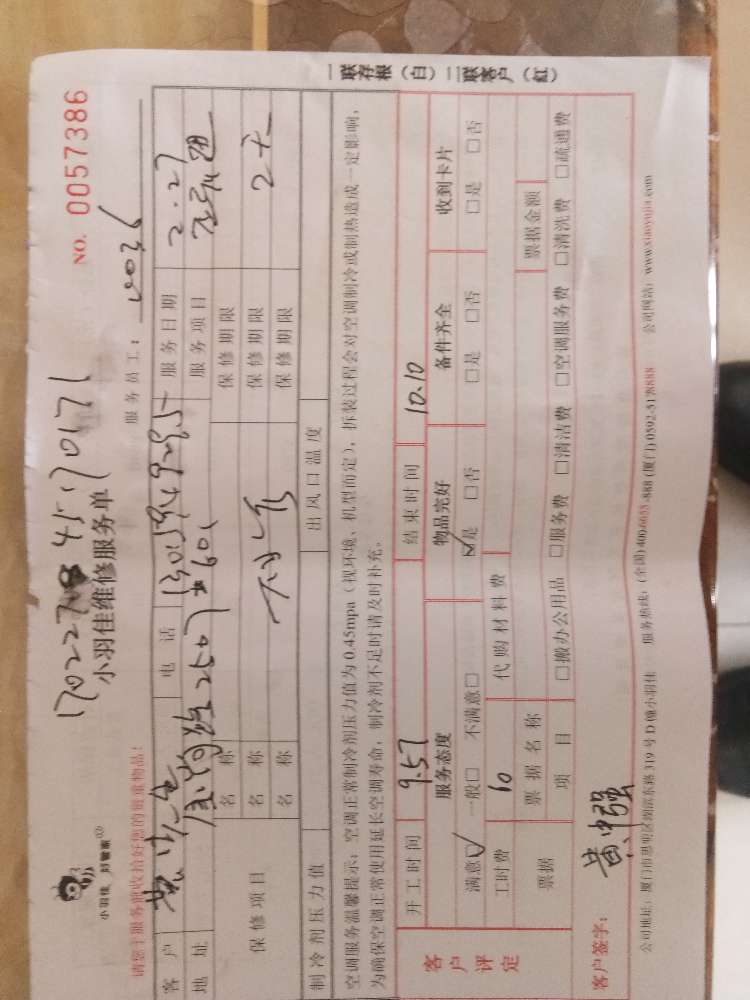 一联存根（白）二联客户（红）
NO. 0057386
小羽佳维修服务单
服务员工：
请您于服务前收拾好您的贵重物品！
客户 电话 服务日期 2.27
地址 服务项目
保修项目 名称 保修期限
名称 保修期限 2天
名称 保修期限
制冷剂压力值 出风口温度
空调服务温馨提示：空调正常制冷剂压力值为0.45mpa（视环境、机型而定），拆装过程会对空调制冷或制热造成一定影响，
为确保空调正常使用延长空调寿命，制冷剂不足时请及时补充。
开工时间 9.57 结束时间 10.10
客户评定 服务态度 物品完好 备件齐全 收到卡片
满意☑ 一般□ 不满意□ ☑是 □否 □是 □否 □是 □否
工时费 60 代购材料费
票据 票据名称 票据金额
项目 □搬办公用品 □服务费 □清洁费 □空调服务费 □清洗费 □疏通费
客户签字： 黄中强
公司地址：厦门市思明区湖滨东路319号D幢小羽佳 服务热线：(全国) 400-6055-888 (厦门) 0592-5178888 公司网站：www.xiaoyujia.com